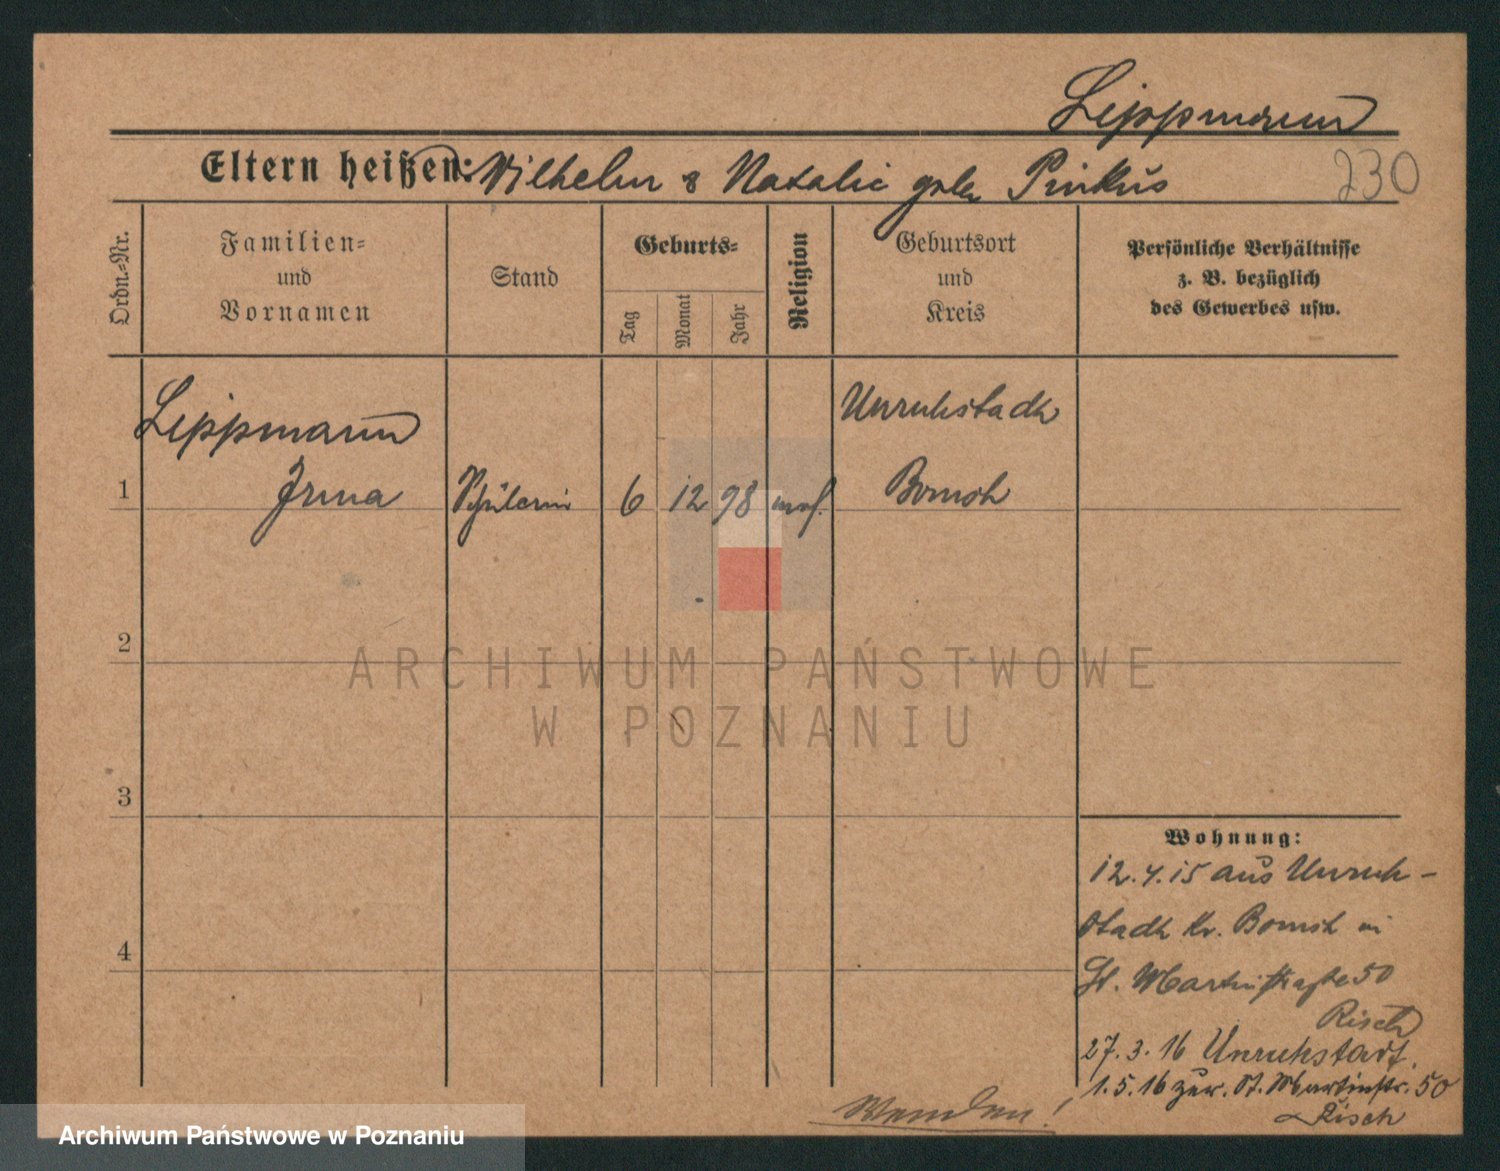 Lippmann
Eltern heißen: Wilhelm & Natalie geb. Pinkus
230
Ordn.-Nr.
Familien-
und
Vornamen
Stand
Geburts-
Tag
Monat
Jahr
Religion
Geburtsort
und
Kreis
Persönliche Verhältnisse
z. B. bezüglich
des Gewerbes usw.
Lippmann
Unruhstadt
1 Irma Schülerin 6 12 98 mos. Bomst
2
ARCHIWUM PAŃSTWOWE
W POZNANIU
3
4
Wohnung:
12.4.15 aus Unruh-
stadt Kr. Bomst in
St. Martinstraße 50
Risch
27.3.16 Unruhstadt.
1.5.16 zur. St. Martinstr. 50
Risch
Wenden!
Archiwum Państwowe w Poznaniu